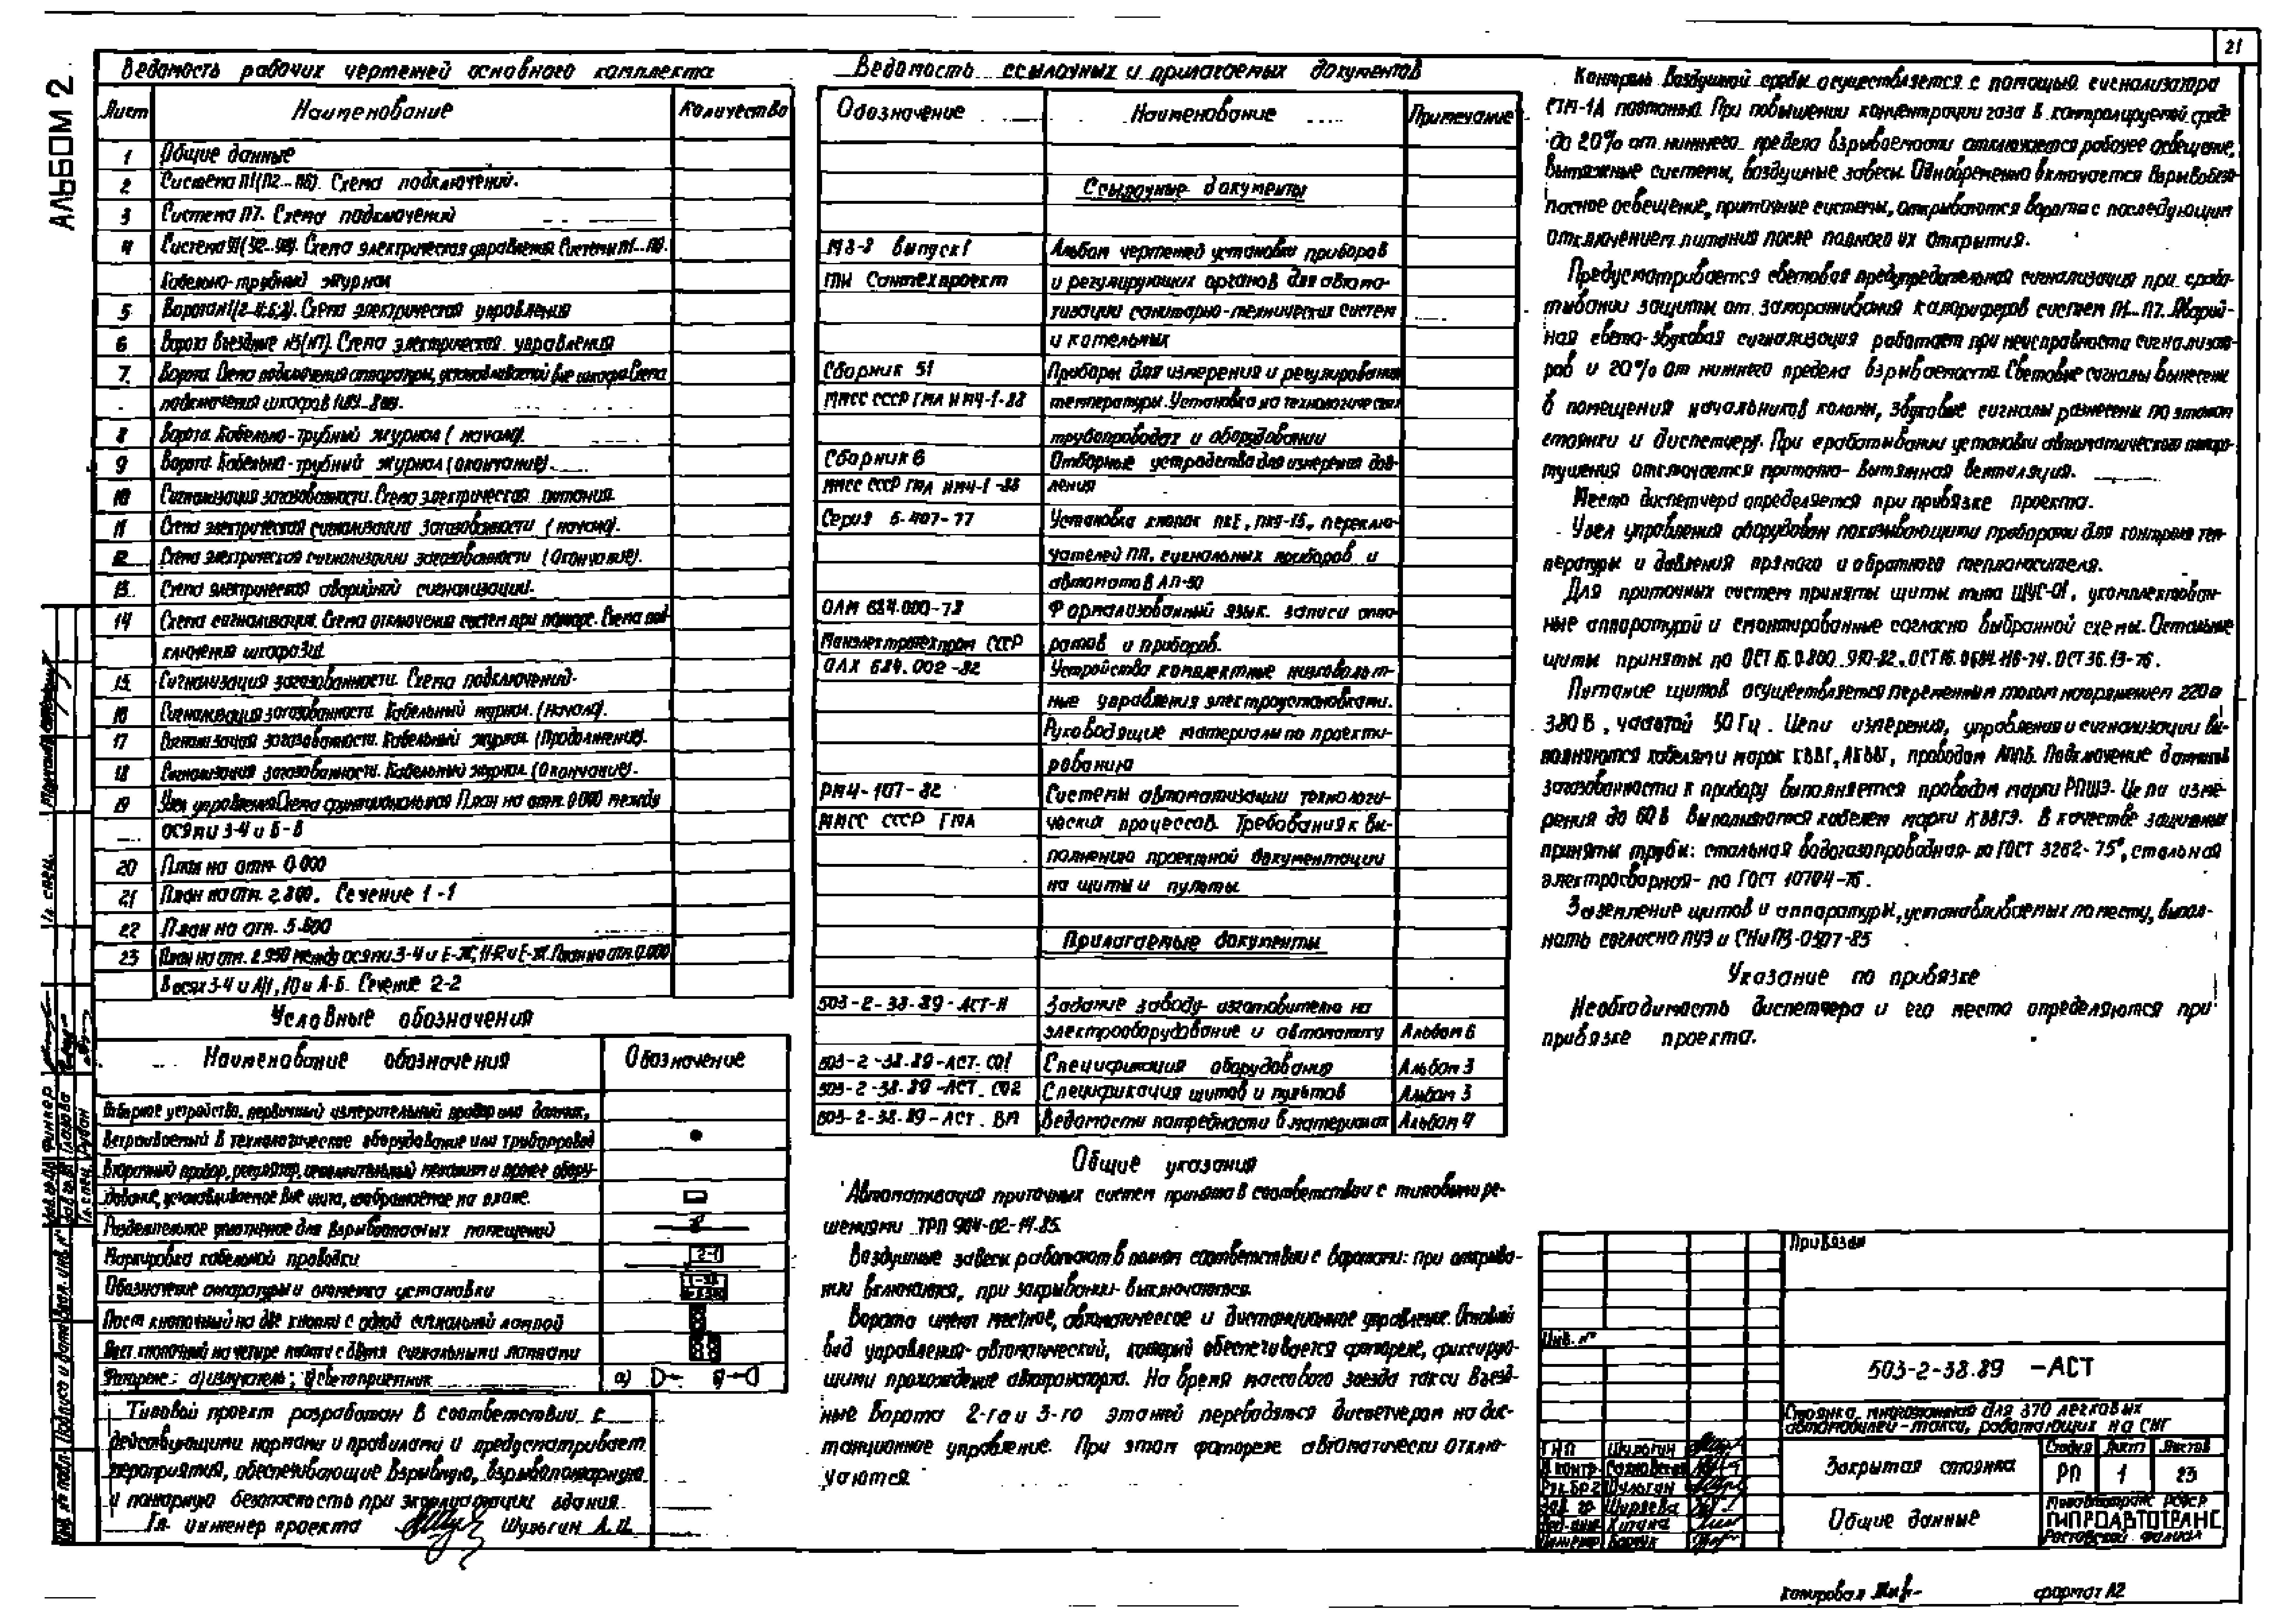 21
АЛЬБОМ 2
Ведомость рабочих чертежей основного комплекта
Лист Наименование Количество
1 Общие данные
2 Система П1(П2...П6). Схема подключений.
3 Система П7. Схема подключений
4 Схема электрическая управления
Кабельно-трубный журнал
5 Схема электрическая управления
6 Ворота въездные №3(№7). Схема электрическая управления
7 Ворота. Схема подключения аппаратуры, устанавливаемой вне шкафа. Схема
подключения шкафов
8 Ворота. Кабельно-трубный журнал (начало).
9 Ворота. Кабельно-трубный журнал (окончание).
10 Сигнализация загазованности. Схема электрическая питания.
11 Схема электрическая сигнализации загазованности. (начало).
12 Схема электрическая сигнализации загазованности (Окончание).
13 Схема электрическая аварийной сигнализации.
14 Схема сигнализации. Схема отключения систем при пожаре. Схема под-
ключения шкафа
15 Сигнализация загазованности. Схема подключений.
16 Сигнализация загазованности. Кабельный журнал. (Начало).
17 Сигнализация загазованности. Кабельный журнал. (Продолжение).
18 Сигнализация загазованности. Кабельный журнал. (Окончание).
19 Узел управления. Схема функциональная. План на отм. 0.000 между
осями 3-4 и Б-В
20 План на отм. 0.000
21 План на отм. 2.800. Сечение 1-1
22 План на отм. 5.600
23 План на отм. 2.950 между осями 3-4 и Е-Ж, План на отм. 0.000
В осях 3-4 и А/1, 10 и А-Б. Сечение 2-2
Условные обозначения
Наименование обозначения Обозначение
Отборное устройство, первичный измерительный прибор или датчик,
встраиваемый в технологическое оборудование или трубопровод
Вторичный прибор, регулятор, исполнительный механизм и прочее обору-
дование, устанавливаемое вне щита, изображаемое на плане.
Разделительное уплотнение для взрывоопасных помещений
Маркировка кабельной проводки 2-1
Обозначение аппаратуры и отметка установки
Пост кнопочный на две кнопки с одной сигнальной лампой
Пост кнопочный на четыре кнопки с двумя сигнальными лампами
Фотореле: а) излучатель; б) светоприемник а) б)
Типовой проект разработан в соответствии с
действующими нормами и правилами и предусматривает
мероприятия, обеспечивающие взрывную, взрывопожарную
и пожарную безопасность при эксплуатации здания.
Гл. инженер проекта Шульгин А.И.
Ведомость ссылочных и прилагаемых документов
Обозначение Наименование Примечание
Ссылочные документы
МЗ-8 выпуск 1 Альбом чертежей установки приборов
ГПИ Сантехпроект и регулирующих органов для автома-
тизации санитарно-технических систем
и котельных
Сборник 51 Приборы для измерения и регулирования
ММСС СССР ГМА НМЧ-1-88 температуры. Установка на технологических
трубопроводах и оборудовании
Сборник 6 Отборные устройства для измерения дав-
ММСС СССР ГМА НМЧ-1-88 ления
Серия 5-407-77 Установка кнопок ПКЕ, ПКУ-15, переклю-
чателей ПП, сигнальных приборов и
автоматов АП-50
ОЛМ 684.000-72 Формализованный язык записи аппа-
Минэлектротехпром СССР ратов и приборов.
ОЛХ 684.002-82 Устройства комплектные низковольт-
ные управления электроустановками.
Руководящие материалы по проекти-
рованию
РМ4-107-82 Системы автоматизации технологи-
ММСС СССР ГМА ческих процессов. Требования к вы-
полнению проектной документации
на щиты и пульты
Прилагаемые документы
503-2-38.89-АСТ-Н Задание заводу-изготовителю на
электрооборудование и автоматику Альбом 6
503-2-38.89-АСТ.СО1 Спецификация оборудования Альбом 3
503-2-38.89-АСТ.СО2 Спецификация щитов и пультов Альбом 3
503-2-38.89-АСТ.ВМ Ведомости потребности в материалах Альбом 4
Общие указания
Автоматизация приточных систем принята в соответствии с типовыми ре-
шениями ТРП 904-02-14.85.
Воздушные завесы работают в полном соответствии с воротами: при открыва-
нии включаются, при закрывании-выключаются.
Ворота имеют местное, автоматическое и дистанционное управление. Основной
вид управления-автоматический, который обеспечивается фотореле, фиксирую-
щими прохождение автотранспорта. На время массового заезда такси въезд-
ные ворота 2-го и 3-го этажей переводятся диспетчером на дис-
танционное управление. При этом фотореле автоматически отклю-
чаются.
Контроль воздушной среды осуществляется с помощью сигнализатора
СТМ-1Д постоянно. При повышении концентрации газа в контролируемой среде
до 20% от нижнего предела взрываемости отключается рабочее освещение,
вытяжные системы, воздушные завесы. Одновременно включается взрывобезо-
пасное освещение, приточные системы, открываются ворота с последующим
отключением питания после полного их открытия.
Предусматривается световая предупредительная сигнализация при сраба-
тывании защиты от замораживания калориферов систем П1...П7. Аварий-
ная свето-звуковая сигнализация работает при неисправности сигнализато-
ров и 20% от нижнего предела взрываемости. Световые сигналы вынесены
в помещения начальников колонн, звуковые сигналы разнесены по этажам
стоянки и диспетчеру. При срабатывании установки автоматического пожаро-
тушения отключается приточно-вытяжная вентиляция.
Место диспетчера определяется при привязке проекта.
Узел управления оборудован показывающими приборами для контроля тем-
пературы и давления прямого и обратного теплоносителя.
Для приточных систем приняты щиты типа ЩУС-01, укомплектован-
ные аппаратурой и смонтированные согласно выбранной схемы. Остальные
щиты приняты по ОСТ 16.0.800.910-82, ОСТ 16.0.684.116-74. ОСТ 36.13-76.
Питание щитов осуществляется переменным током напряжением 220 и
380 В, частотой 50 Гц. Цепи измерения, управления и сигнализации вы-
полняются кабелями марок КВВГ, АКВВГ, проводом АПВ. Подключение датчиков
загазованности к прибору выполняется проводом марки РПШЭ. Цепи изме-
рения до 60 В выполняются кабелем марки КВВГЭ. В качестве защитных
приняты трубы: стальная водогазопроводная-по ГОСТ 3262-75*, стальная
электросварная-по ГОСТ 10704-76.
Заземление щитов и аппаратуры, устанавливаемых по месту, выпол-
нять согласно ПУЭ и СНиП3-05.07-85
Указание по привязке
Необходимость диспетчера и его место определяются при
привязке проекта.
Привязан
Инв. №
503-2-38.89 -АСТ
Стоянка многоэтажная для 370 легковых
автомобилей-такси, работающих на СНГ
Закрытая стоянка
Стадия Лист Листов
РП 1 23
Общие данные
Минавтотранс РСФСР
ГИПРОАВТОТРАНС
Ростовский филиал
ГИП Шульгин
Н.контр
Рук.бр. Шульгин
Шуряева
Инженер
Копировал
формат А2
Гл. спец.
Финкер
Глазова
Подпись и дата
Взам. инв. №
Инв. № подл.